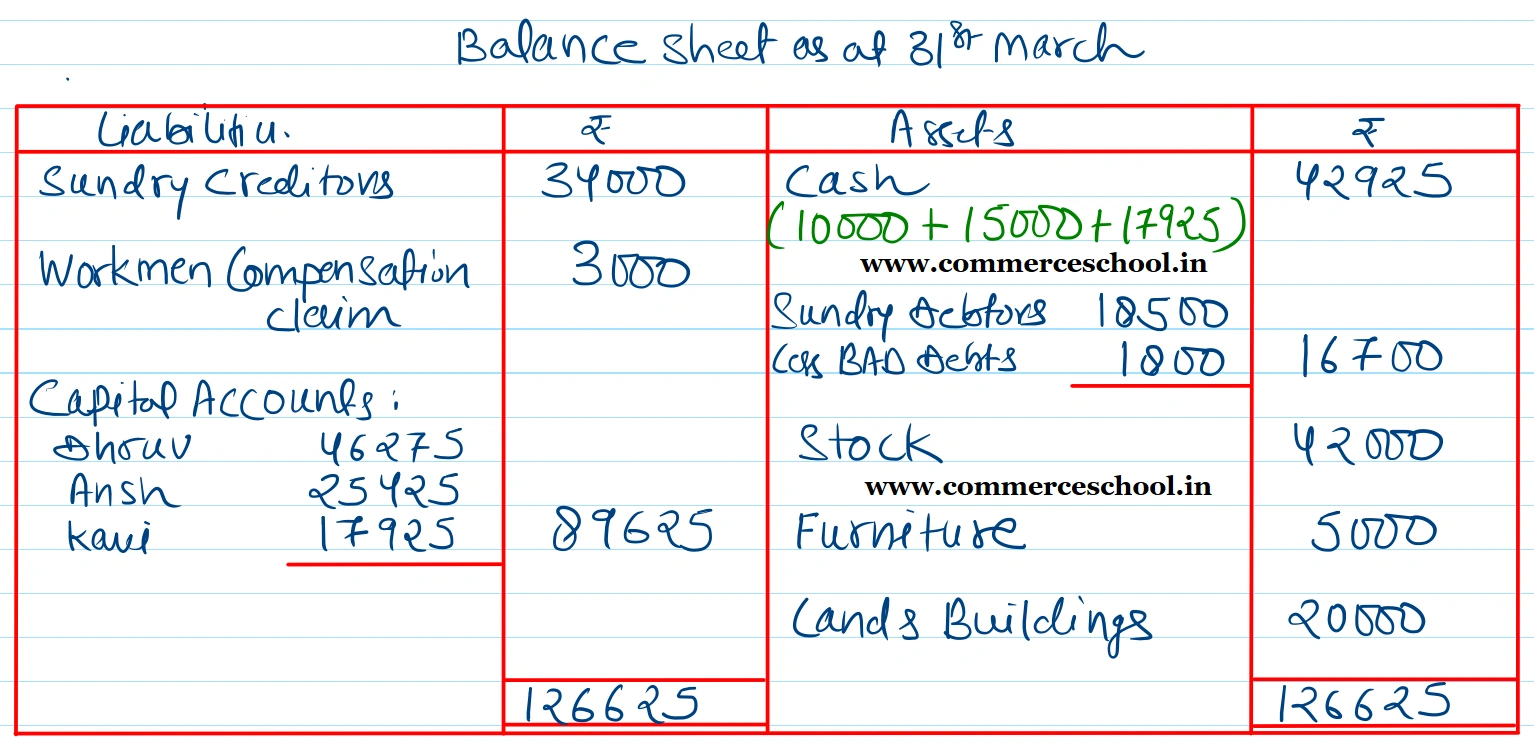 Balance Sheet as at 31st March
Liabilities. ₹ Assets ₹
Sundry Creditors 34000 Cash 42925
(10000 + 15000 + 17925)
Workmen Compensation 3000 www.commerceschool.in
claim Sundry Debtors 18500
Less BAD Debts 1800 16700
Capital Accounts :
Dhruv 46275 Stock 42000
Ansh 25425 www.commerceschool.in
Kavi 17925 89625 Furniture 5000
Land & Buildings 20000
126625 126625